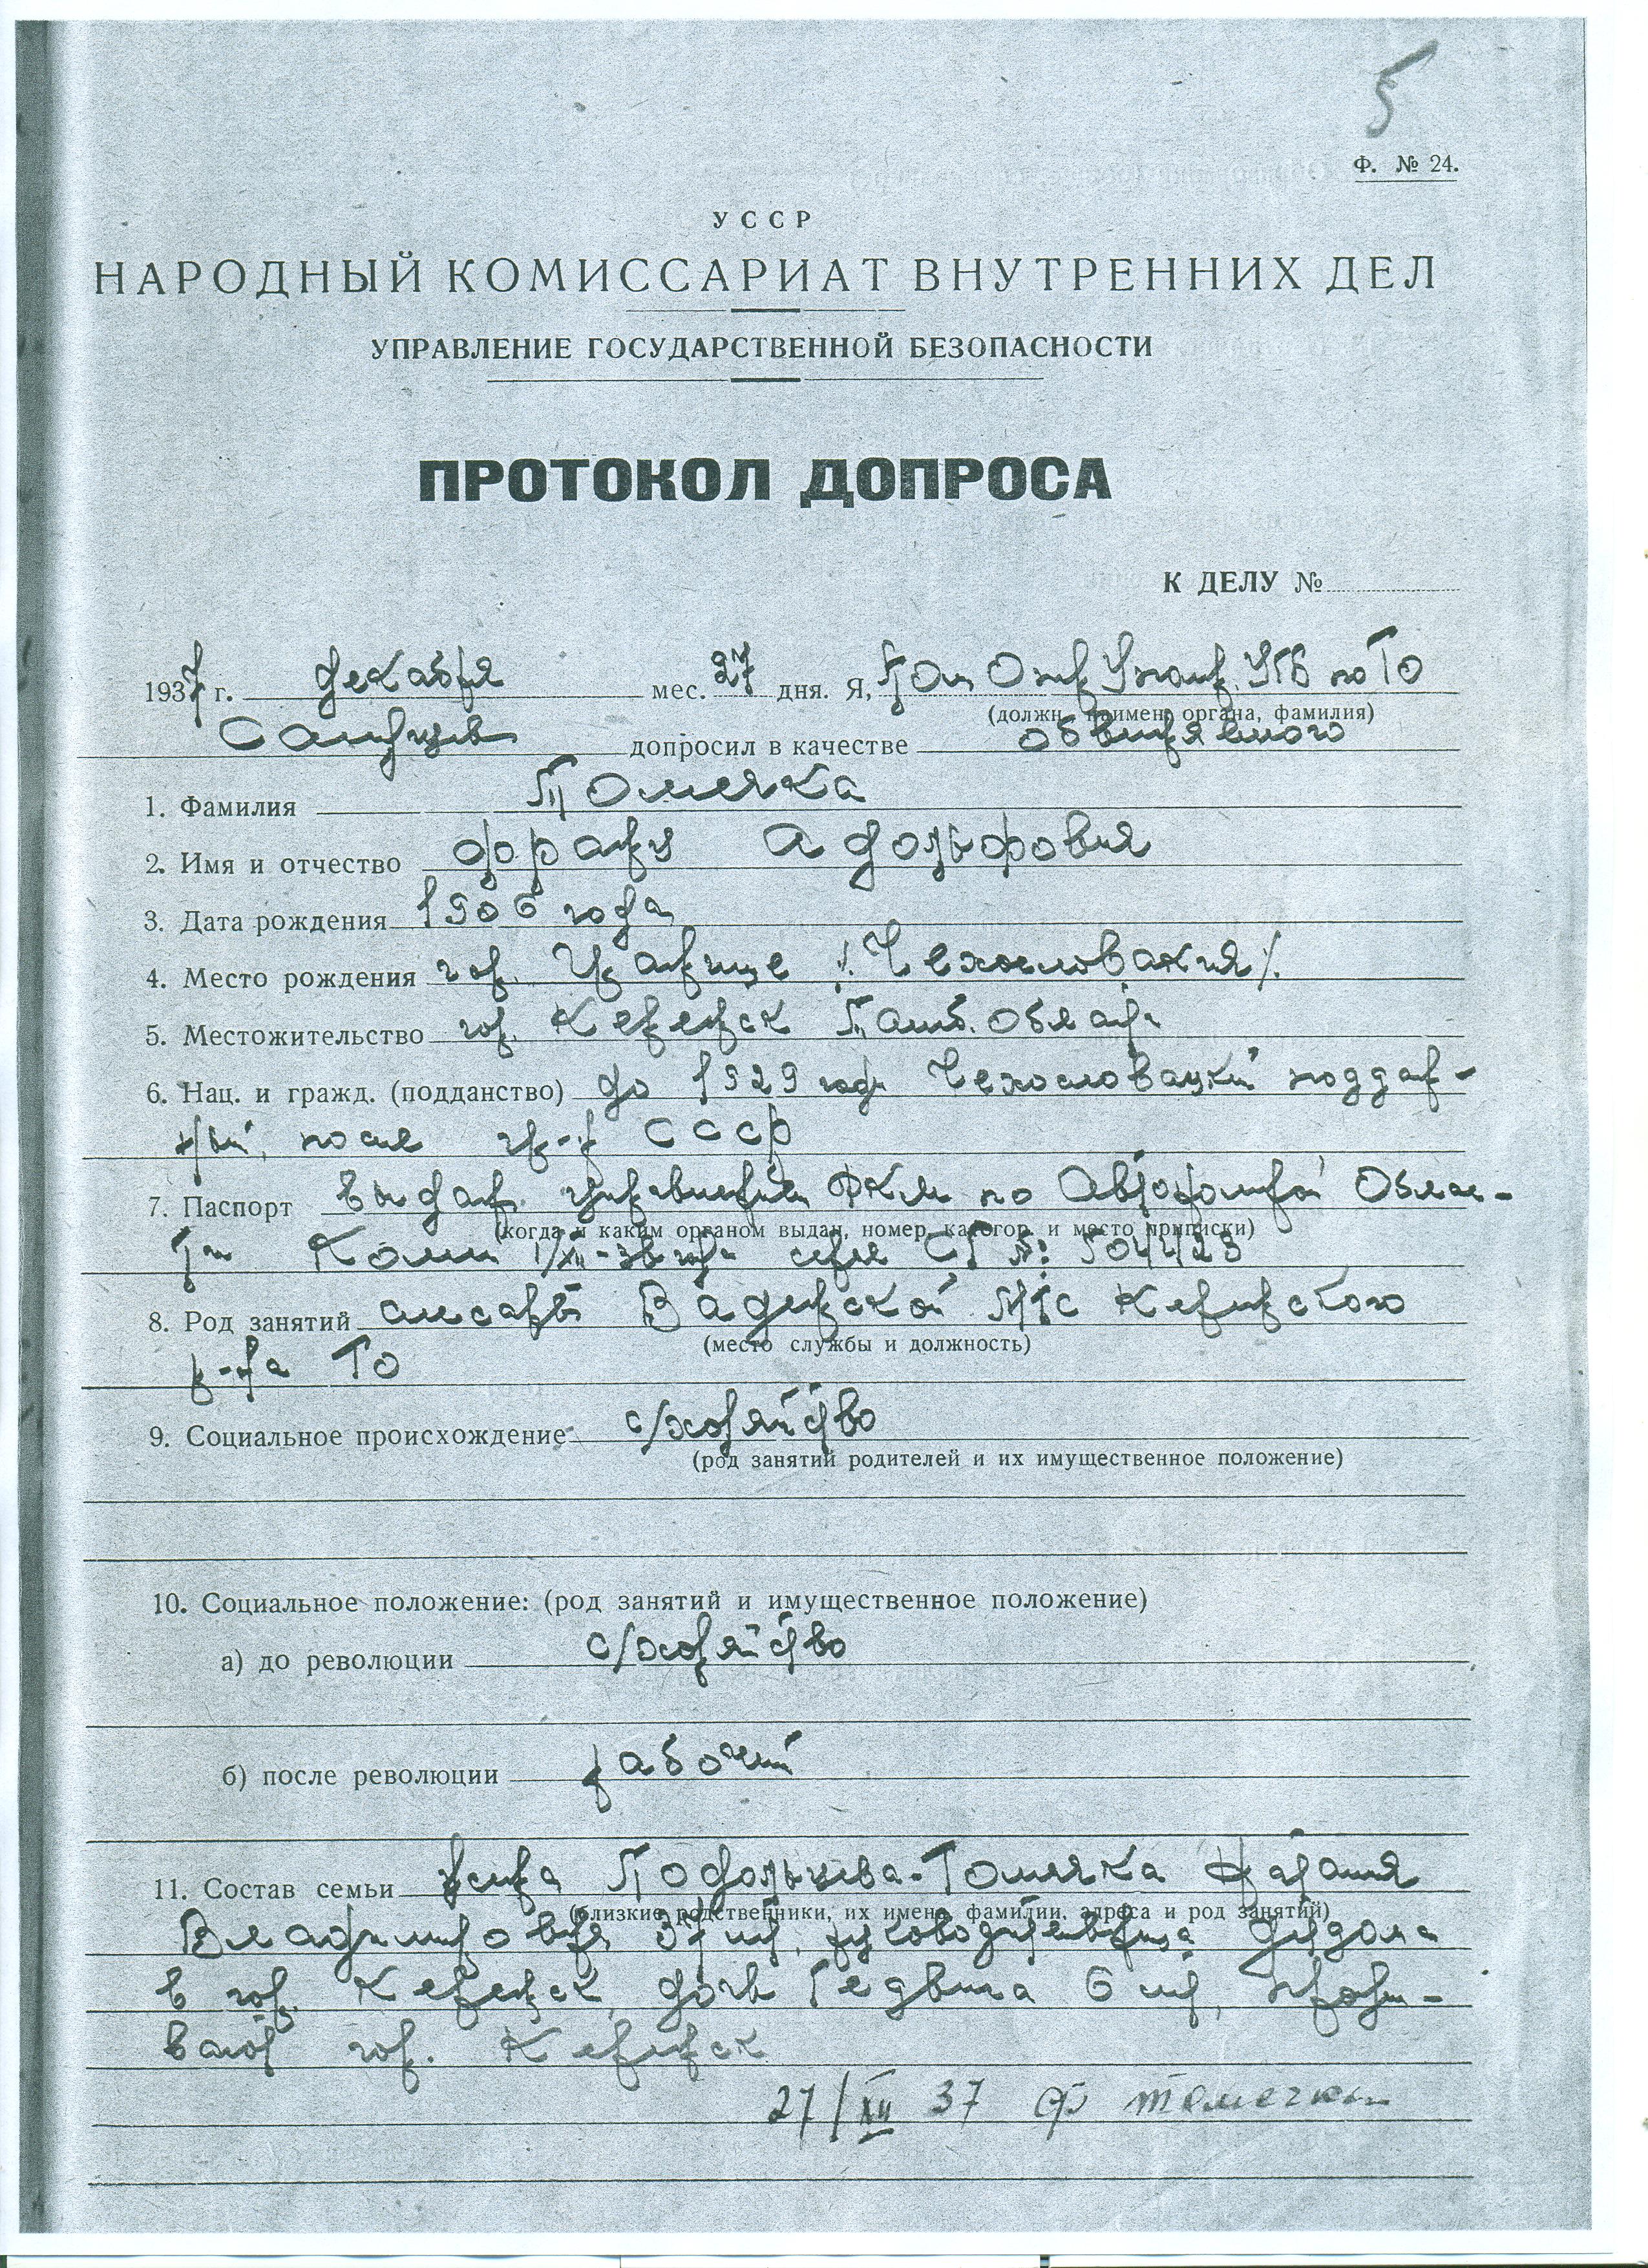 5
Ф. № 24.
УССР
НАРОДНЫЙ КОМИССАРИАТ ВНУТРЕННИХ ДЕЛ
УПРАВЛЕНИЕ ГОСУДАРСТВЕННОЙ БЕЗОПАСНОСТИ
ПРОТОКОЛ ДОПРОСА
К ДЕЛУ №
1937 г. декабря мес. 27 дня. Я, УГБ по ТО
(должн. наимен. органа, фамилия)
допросил в качестве обвиняемого
1. Фамилия Томечка
2. Имя и отчество Франц Адольфович
3. Дата рождения 1906 года
4. Место рождения гор. /Чехословакия/.
5. Местожительство гор. Керенск Тамб. области
6. Нац. и гражд. (подданство) до 1929 года Чехословацкий поддан-
ный, после гр-н СССР
7. Паспорт выдан управлением РКМ по Автономной Облас-
(когда и каким органом выдан, номер, категор. и место приписки)
ти Коми 1/XII-36 года серия №: 504423
8. Род занятий слесарь Вадинской МТС Керенского
(место службы и должность)
р-на ТО
9. Социальное происхождение с/хозяйство
(род занятий родителей и их имущественное положение)
10. Социальное положение: (род занятий и имущественное положение)
а) до революции с/хозяйство
б) после революции рабочий
11. Состав семьи жена Томечка Наталия
(близкие родственники, их имена, фамилии, адреса и род занятий)
Владимировна 37 лет, руководительница детдома
в гор. Керенск, дочь Гедвига 6 лет, прожи-
вают гор. Керенск
27/XII 37 Ф Томечка